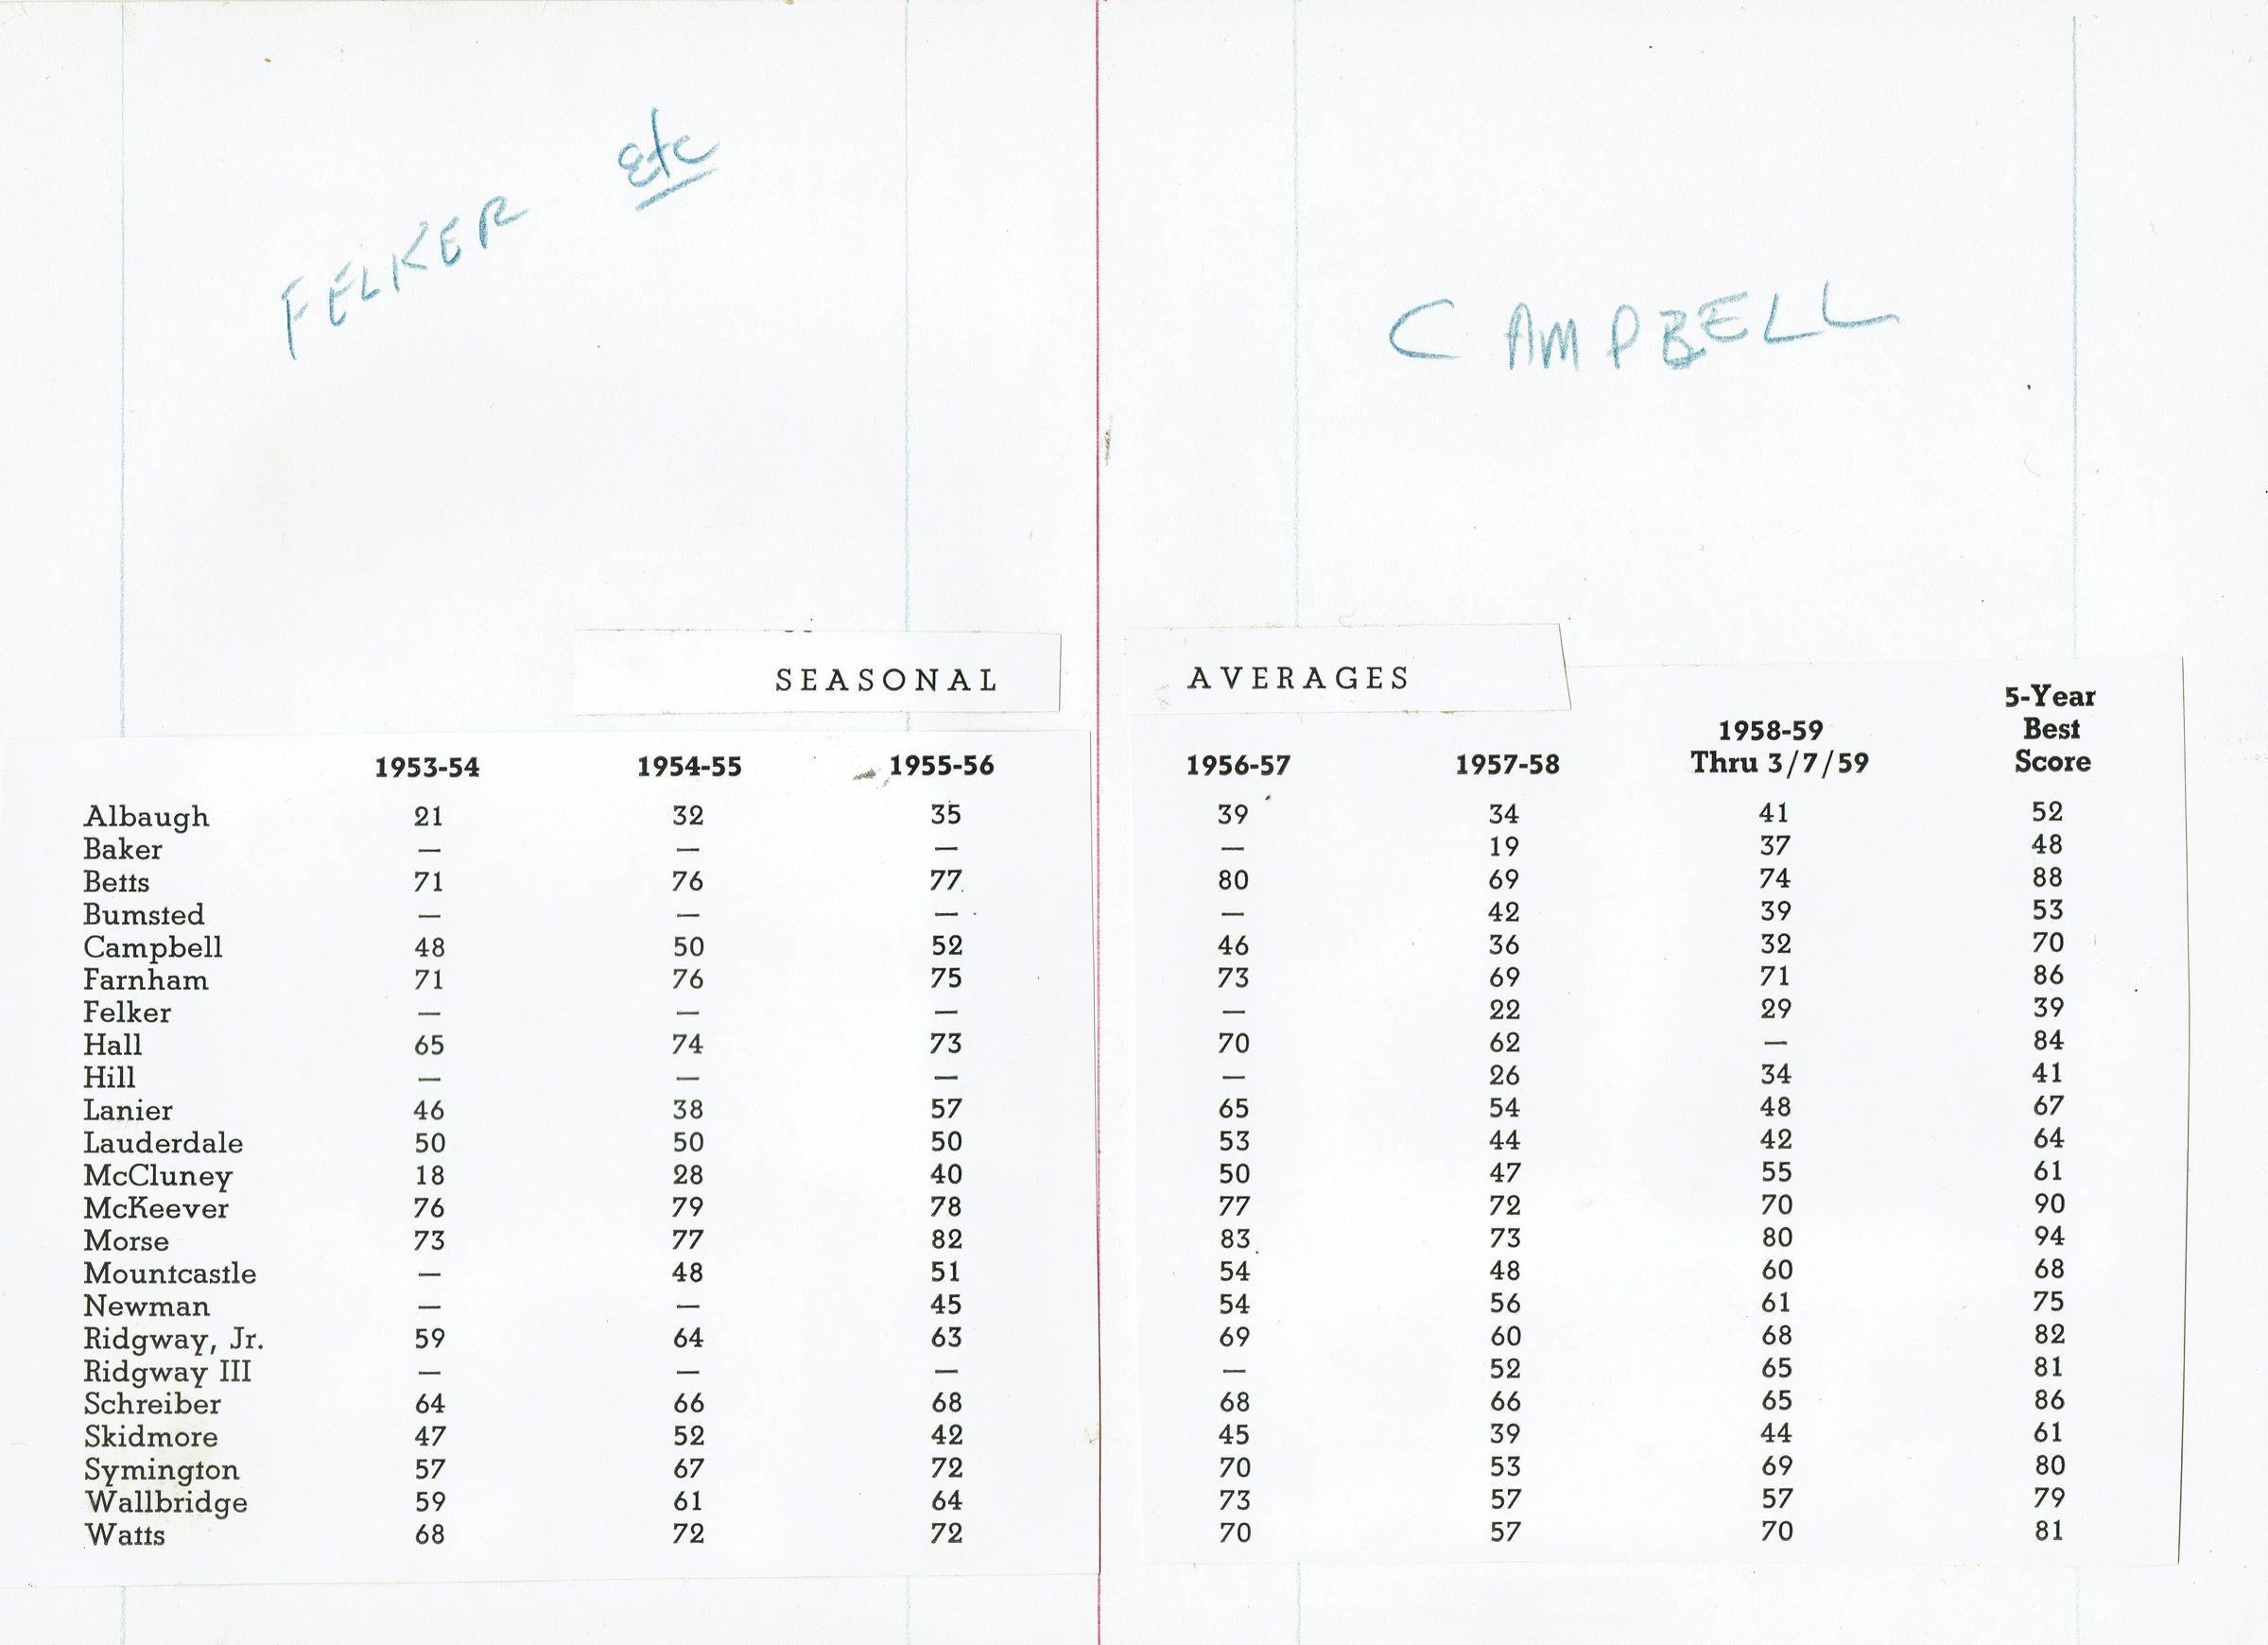 FELKER etc
CAMPBELL
SEASONAL AVERAGES
1953-54 1954-55 1955-56 1956-57 1957-58 1958-59 Thru 3/7/59 5-Year Best Score
Albaugh 21 32 35 39 34 41 52
Baker — — — — 19 37 48
Betts 71 76 77 80 69 74 88
Bumsted — — — — 42 39 53
Campbell 48 50 52 46 36 32 70
Farnham 71 76 75 73 69 71 86
Felker — — — — 22 29 39
Hall 65 74 73 70 62 — 84
Hill — — — — 26 34 41
Lanier 46 38 57 65 54 48 67
Lauderdale 50 50 50 53 44 42 64
McCluney 18 28 40 50 47 55 61
McKeever 76 79 78 77 72 70 90
Morse 73 77 82 83 73 80 94
Mountcastle — 48 51 54 48 60 68
Newman — — 45 54 56 61 75
Ridgway, Jr. 59 64 63 69 60 68 82
Ridgway III — — — — 52 65 81
Schreiber 64 66 68 68 66 65 86
Skidmore 47 52 42 45 39 44 61
Symington 57 67 72 70 53 69 80
Wallbridge 59 61 64 73 57 57 79
Watts 68 72 72 70 57 70 81